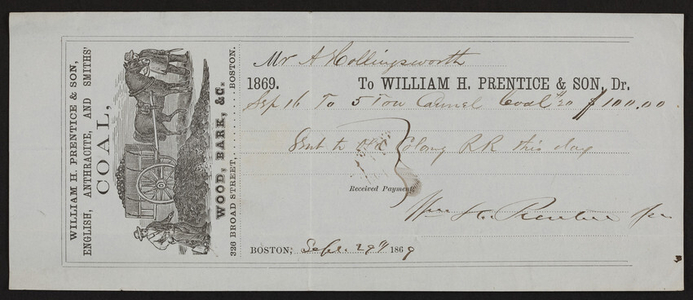 WILLIAM H. PRENTICE & SON,
ENGLISH, ANTHRACITE, AND SMITHS'
COAL,
WOOD, BARK, &C.
326 BROAD STREET, BOSTON.
Mr A Hollingsworth
1869. To WILLIAM H. PRENTICE & SON, Dr.
Sep 16 To 5 Ton Cannel Coal 20 $100.00
Sent to Old Colony RR this day
Received Payment,
Wm H. Prentice
BOSTON, Sept. 29th 1869